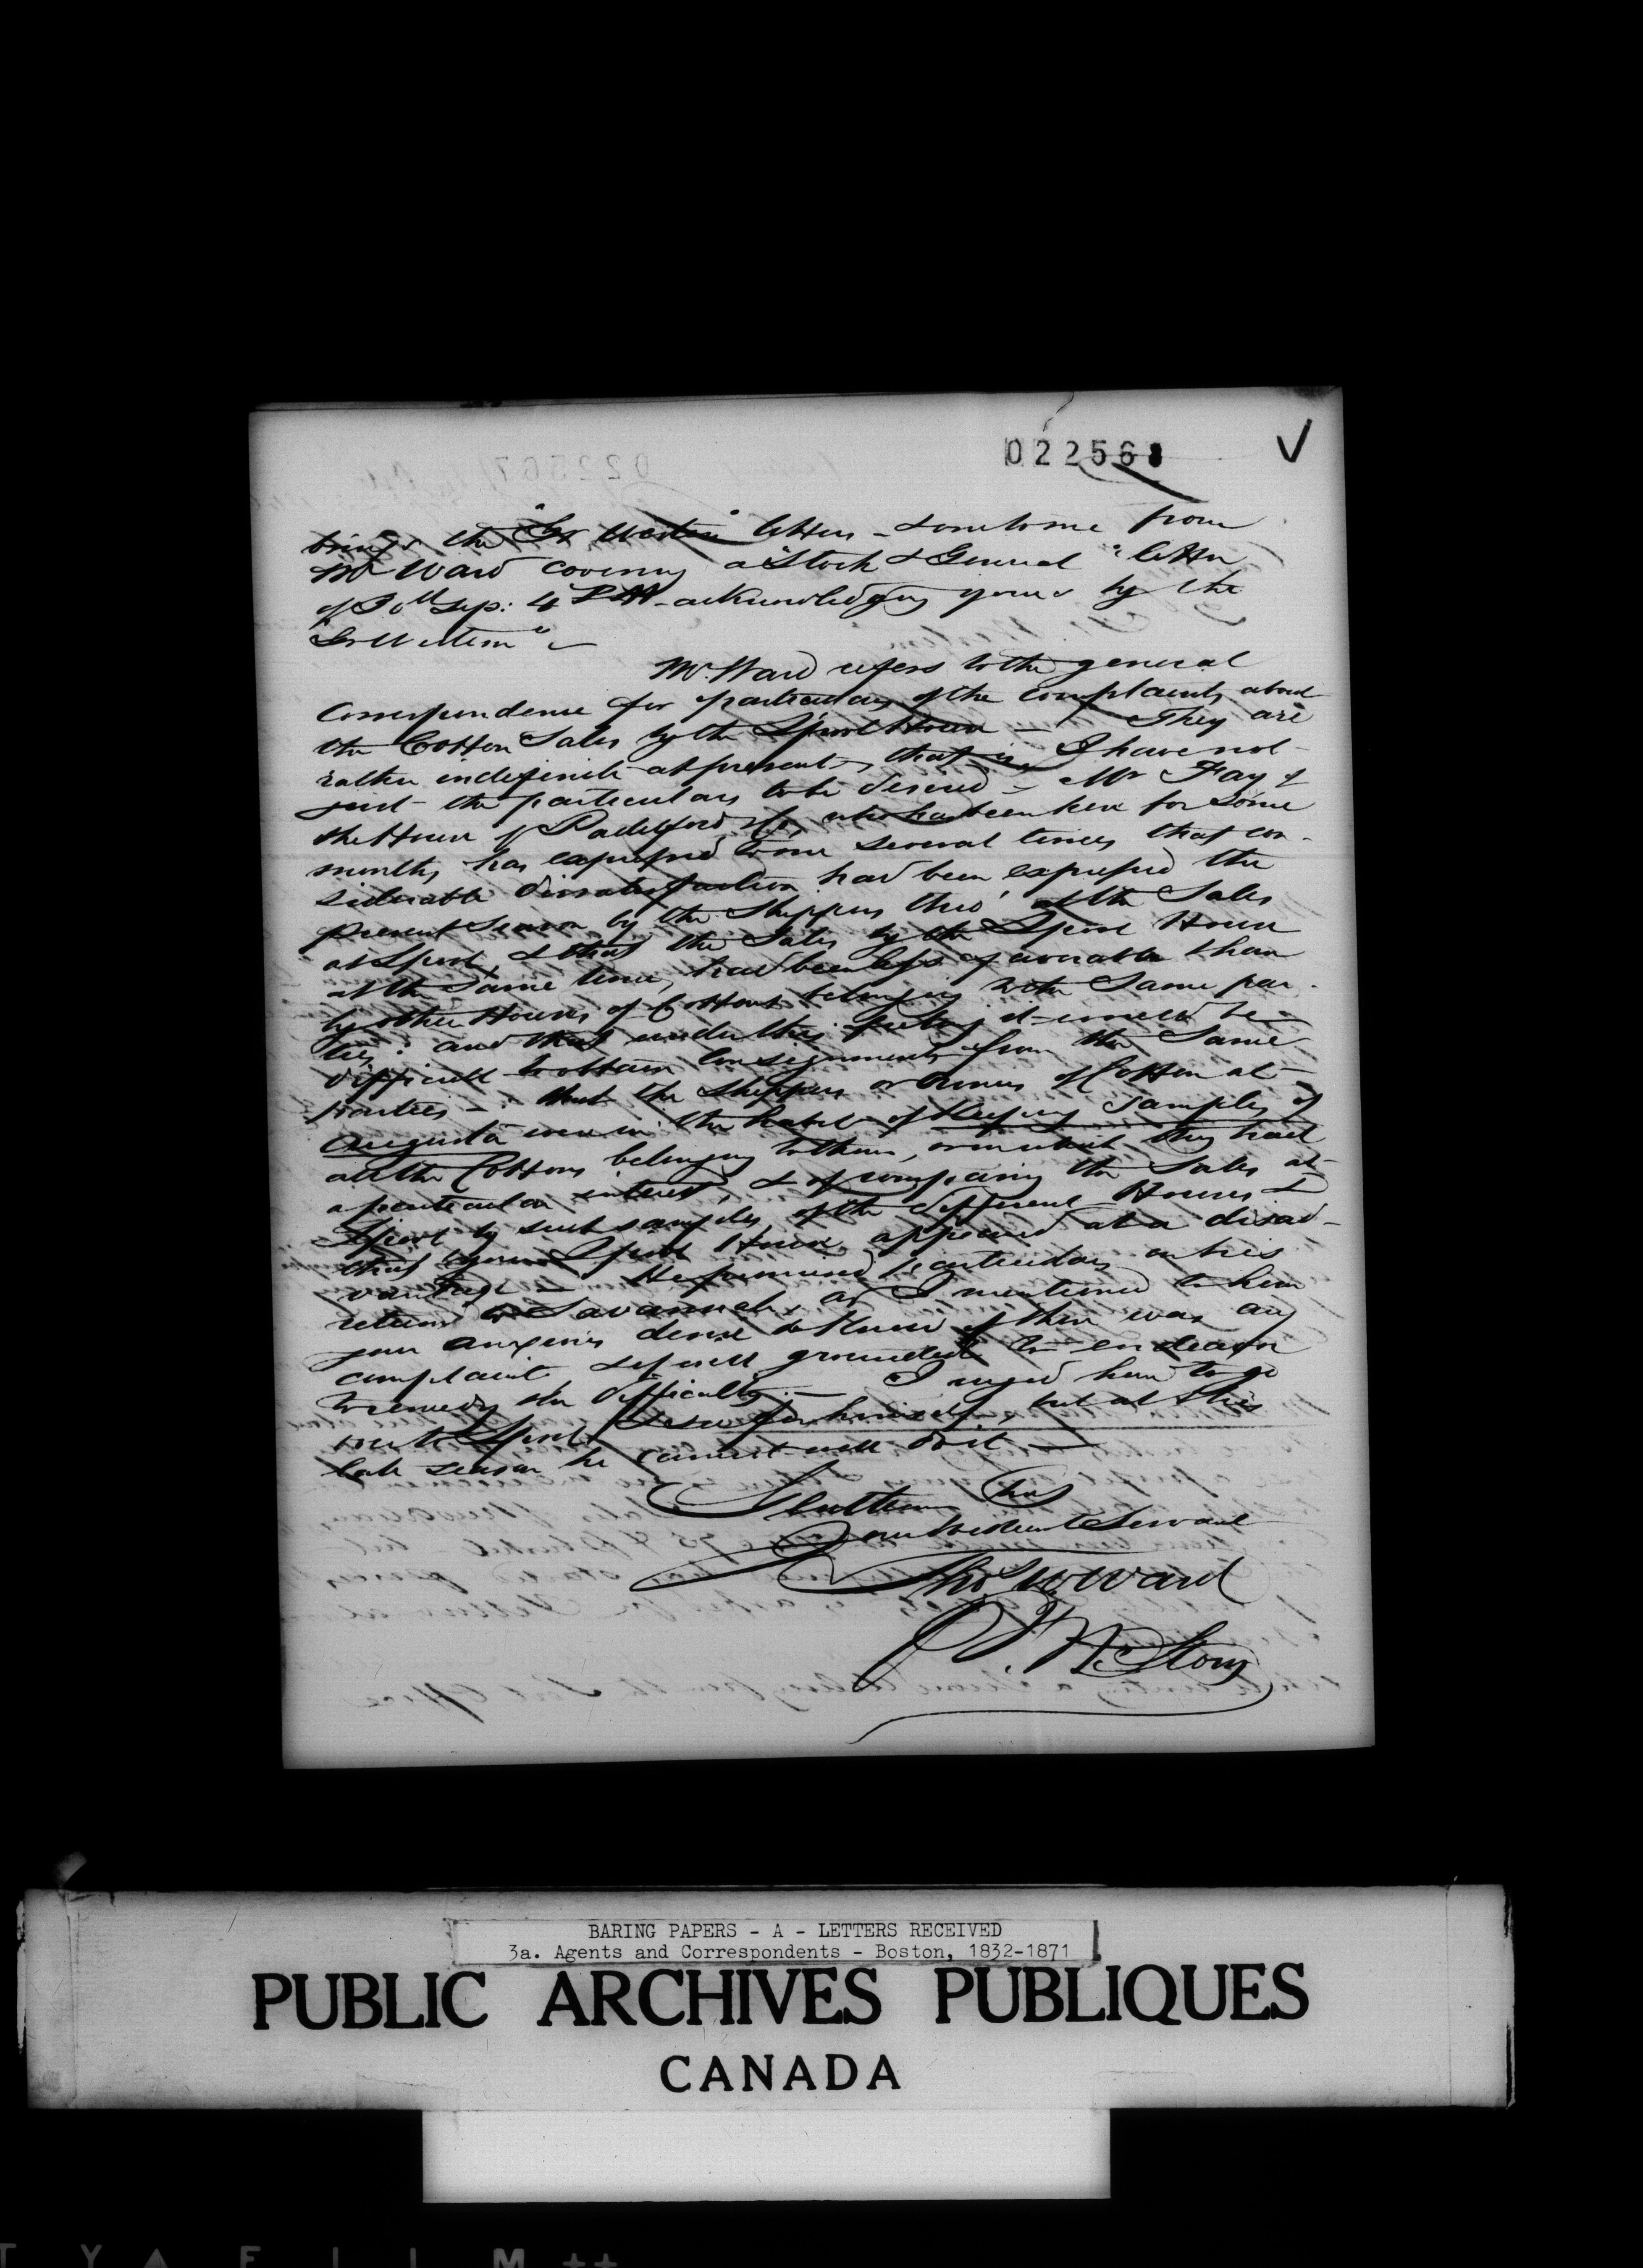 022568
brings the "Gr Western" letters - & one to me from
Mr Ward covering a "Stock & General" letter
of Sep: 4 PM - acknowledging yours by the
"Gr Western" -
Mr. Ward refers to the general
Correspondence for particulars of the complaints about
the Cotton Sales by the Lpool House - They are
rather indefinite at present, that is, I have not
just the particulars to be desired - Mr Fay of
the House of Padelford & Co, who has been here for some
months, has expressed to me several times, that con-
siderable dissatisfaction had been expressed the
present season by the Shippers thro' at the Sales
at Lpool, & that the Sales by the Lpool House
at the same time, had been less favorable than
by other Houses of Cottons belonging to the same par-
ties: and that under this feeling it would be
difficult to obtain Consignments from the same
parties - that the Shippers or Owners of Cotton at
Augusta were in the habit of keeping samples of
all the Cottons belonging to them, or in which they had
a particular interest, & of comparing the Sales at
Lpool by such samples, of the different Houses &
that your Lpool House appeared at a disad-
vantage - He promised particulars on his
return to Savannah, as I mentioned to him
your anxious desire to know if there was any
complaint & if well grounded to endeavor
to remedy the difficulty. - I urged him to go
over to Lpool & see for himself, but at this
late season he cannot well do it -
Gentlemen
Your Obedient Servant
Thos W Ward
P. F. W. Story
BARING PAPERS - A - LETTERS RECEIVED
3a. Agents and Correspondents - Boston, 1832-1871
PUBLIC ARCHIVES PUBLIQUES
CANADA